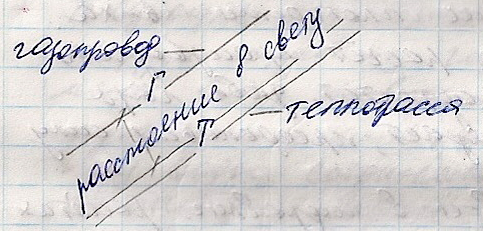 газопровод
Г
расстояние в свету
Т
теплотрасса